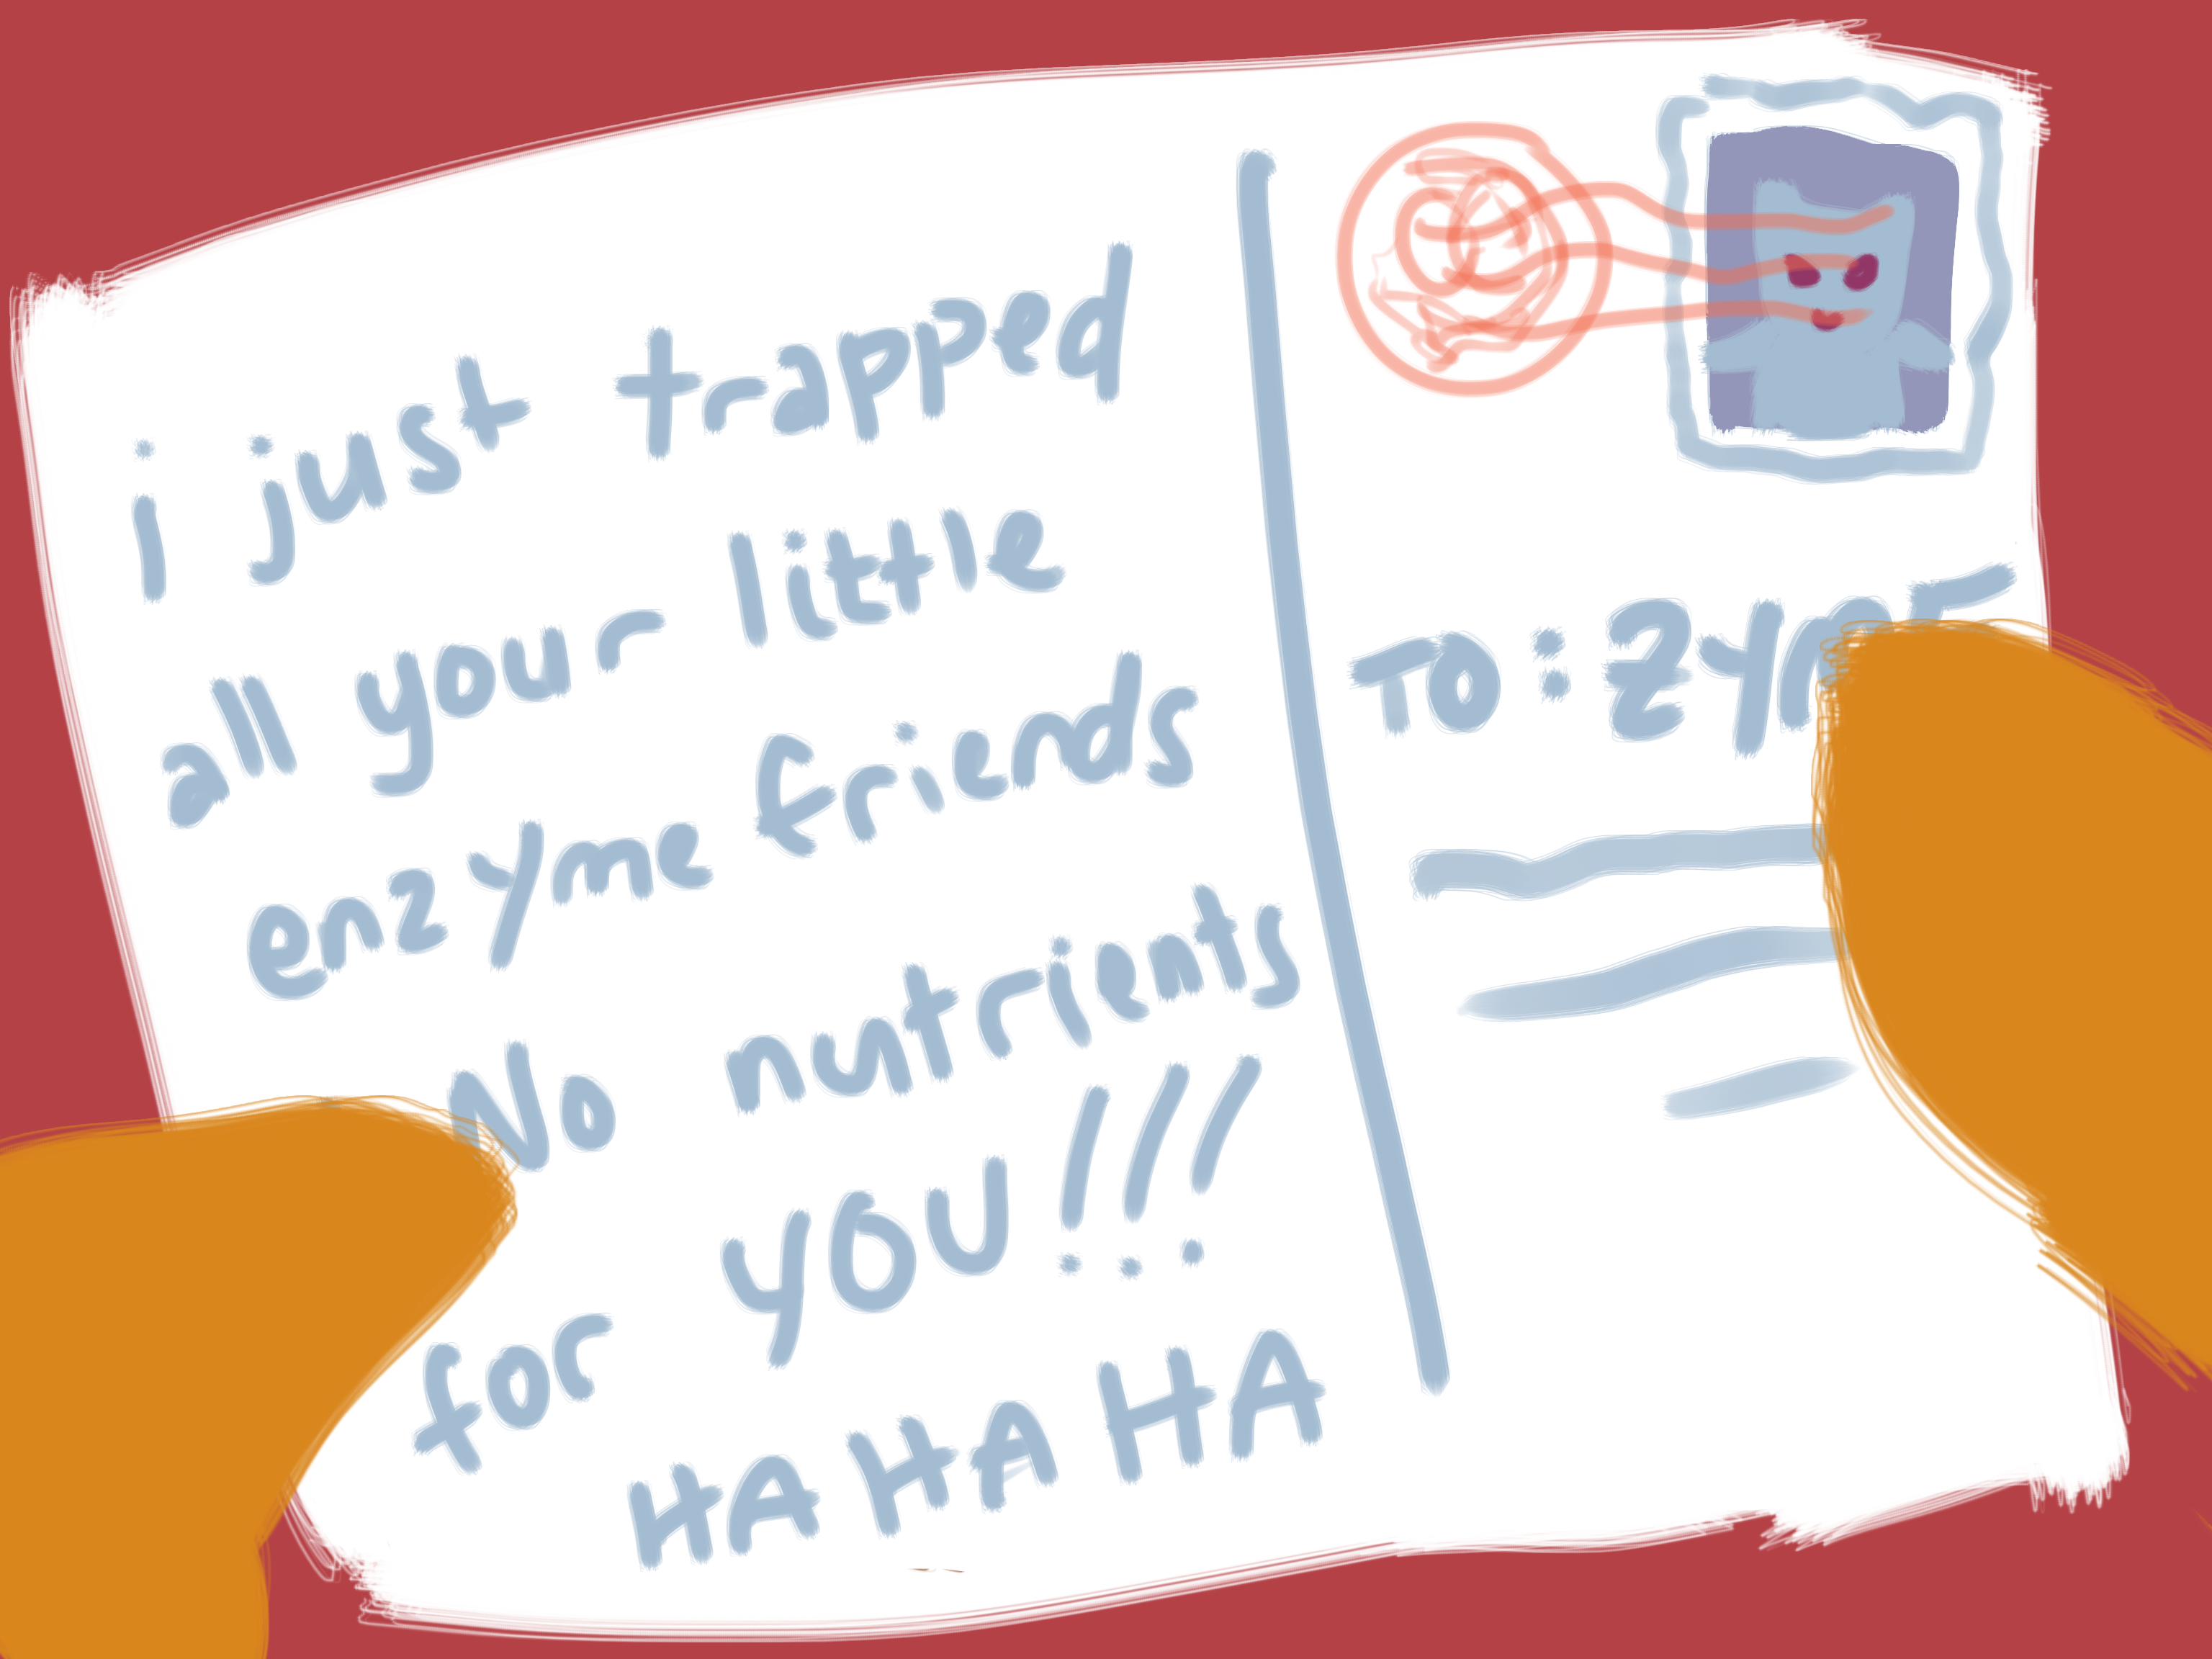 i just trapped
all your little
enzyme friends
No nutrients
for you!!!
HAHAHA
TO: